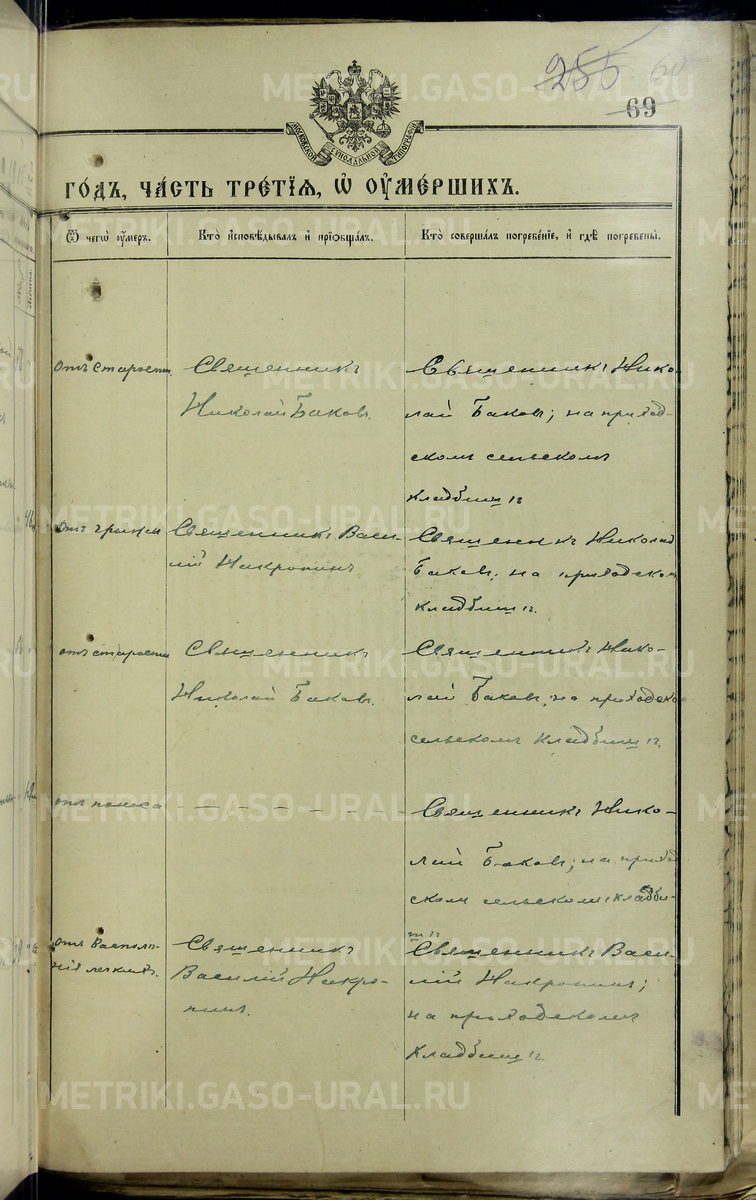 255. 60
69
МОСКОВСКОЙ СѴНОДАЛЬНОЙ ТИПОГРАФІИ
ГОДЪ, ЧАСТЬ ТРЕТІѦ, Ѡ ОУМЕРШИХЪ.
Ѿ чегѡ оумеръ.
Кто исповѣдывалъ и пріобщалъ.
Кто совершалъ погребеніе, и гдѣ погребены.
отъ старости.
Священникъ
Николай Баковъ.
Священникъ Нико-
лай Баковъ; на приход-
скомъ сельскомъ
кладбищѣ
отъ грыжи
Священникъ Васи-
лій
Священникъ Николай
Баковъ; на приходском
кладбищѣ.
отъ старости
Священникъ
Николай Баковъ.
Священникъ Нико-
лай Баковъ, на приходско
сельскомъ кладбищѣ.
отъ поноса
- - - - - - -
Священникъ Нико-
лай Баковъ; на приход
скомъ сельскомъ кладби-
щѣ
отъ воспале-
нія легкихъ.
Священникъ
Василій
Священникъ Васи-
лій
на приходскомъ
кладбищѣ.
METRIKI.GASO-URAL.RU